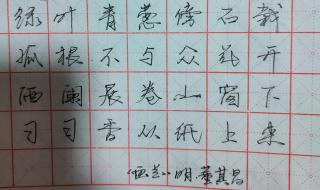 绿叶青葱傍石栽
孤根不与众花开
酒阑展卷山窗下
习习香从纸上来
《画兰》明.董其昌